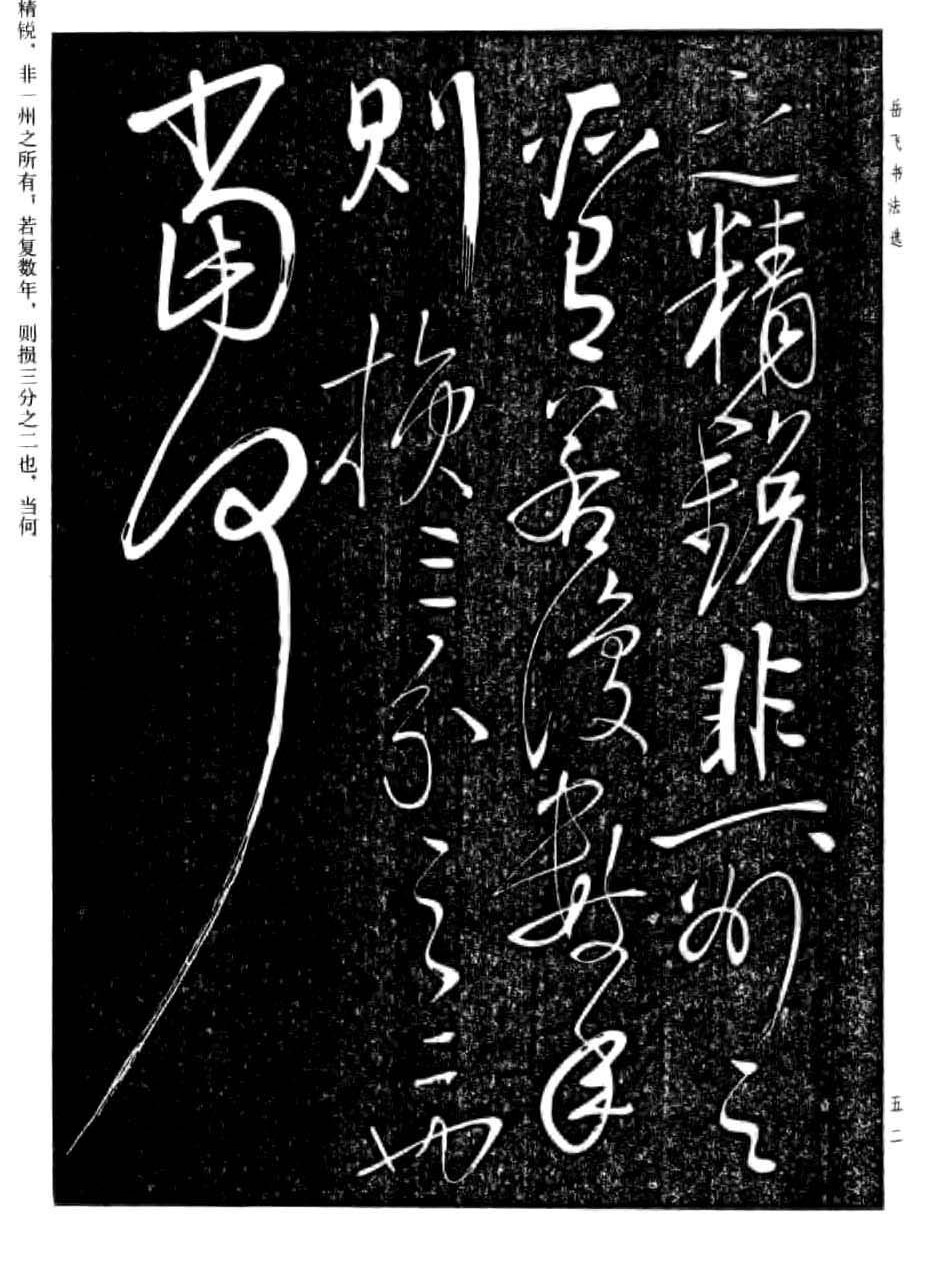 岳飞书法选
五二
之精銳非一州之
所有若復數年
則損三分之二也
當何
精锐，非一州之所有，若复数年，则损三分之二也，当何